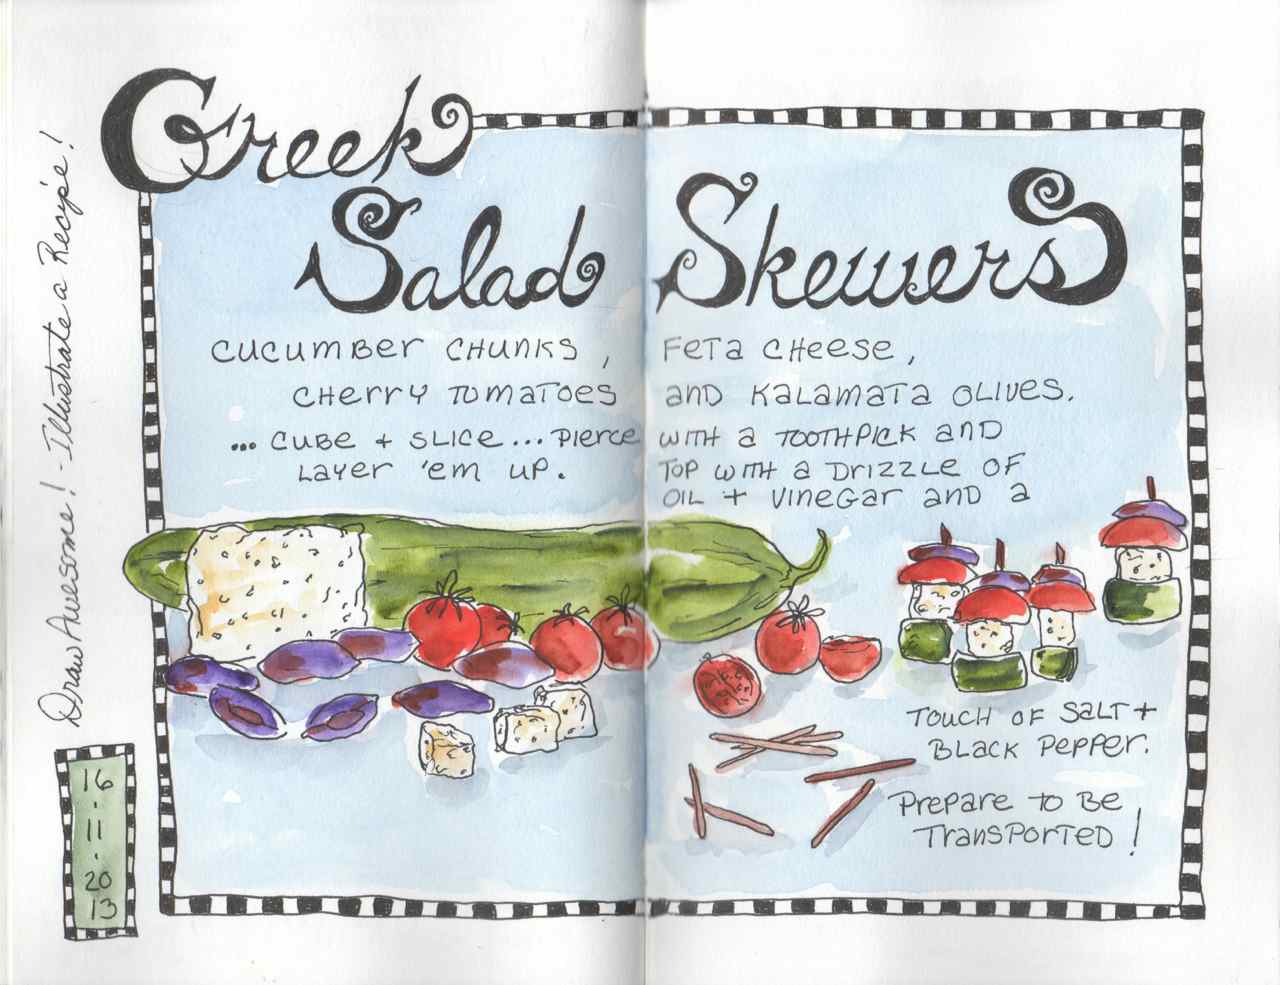 Greek
Salad Skewers
CUCUMBER CHUNKS, FETA CHEESE,
CHERRY TOMATOES AND KALAMATA OLIVES.
... CUBE + SLICE... PIERCE WITH A TOOTHPICK AND
LAYER 'EM UP. TOP WITH A DRIZZLE OF
OIL + VINEGAR AND A
TOUCH OF SALT +
BLACK PEPPER.
PREPARE TO BE
TRANSPORTED!
Draw Awesome! - Illustrate a Recipe!
16
.
11
.
20
13